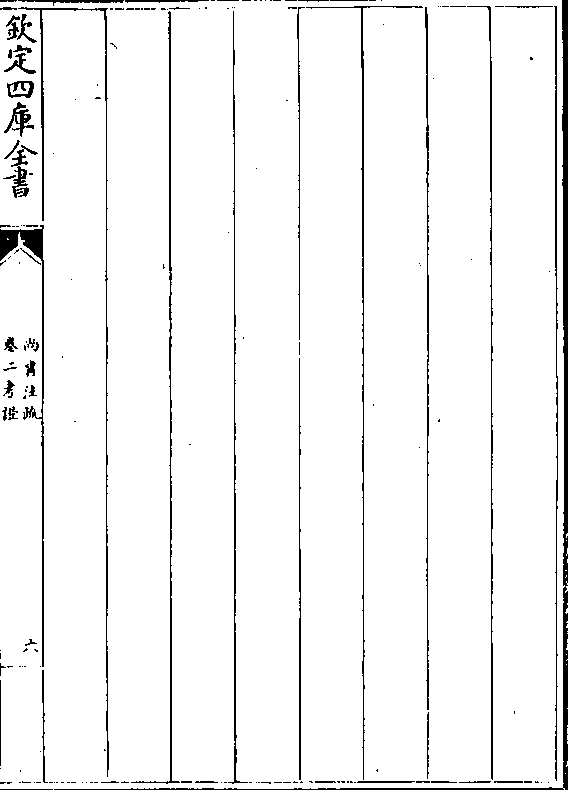 欽定四庫全書
尚書注疏
卷二考證
六